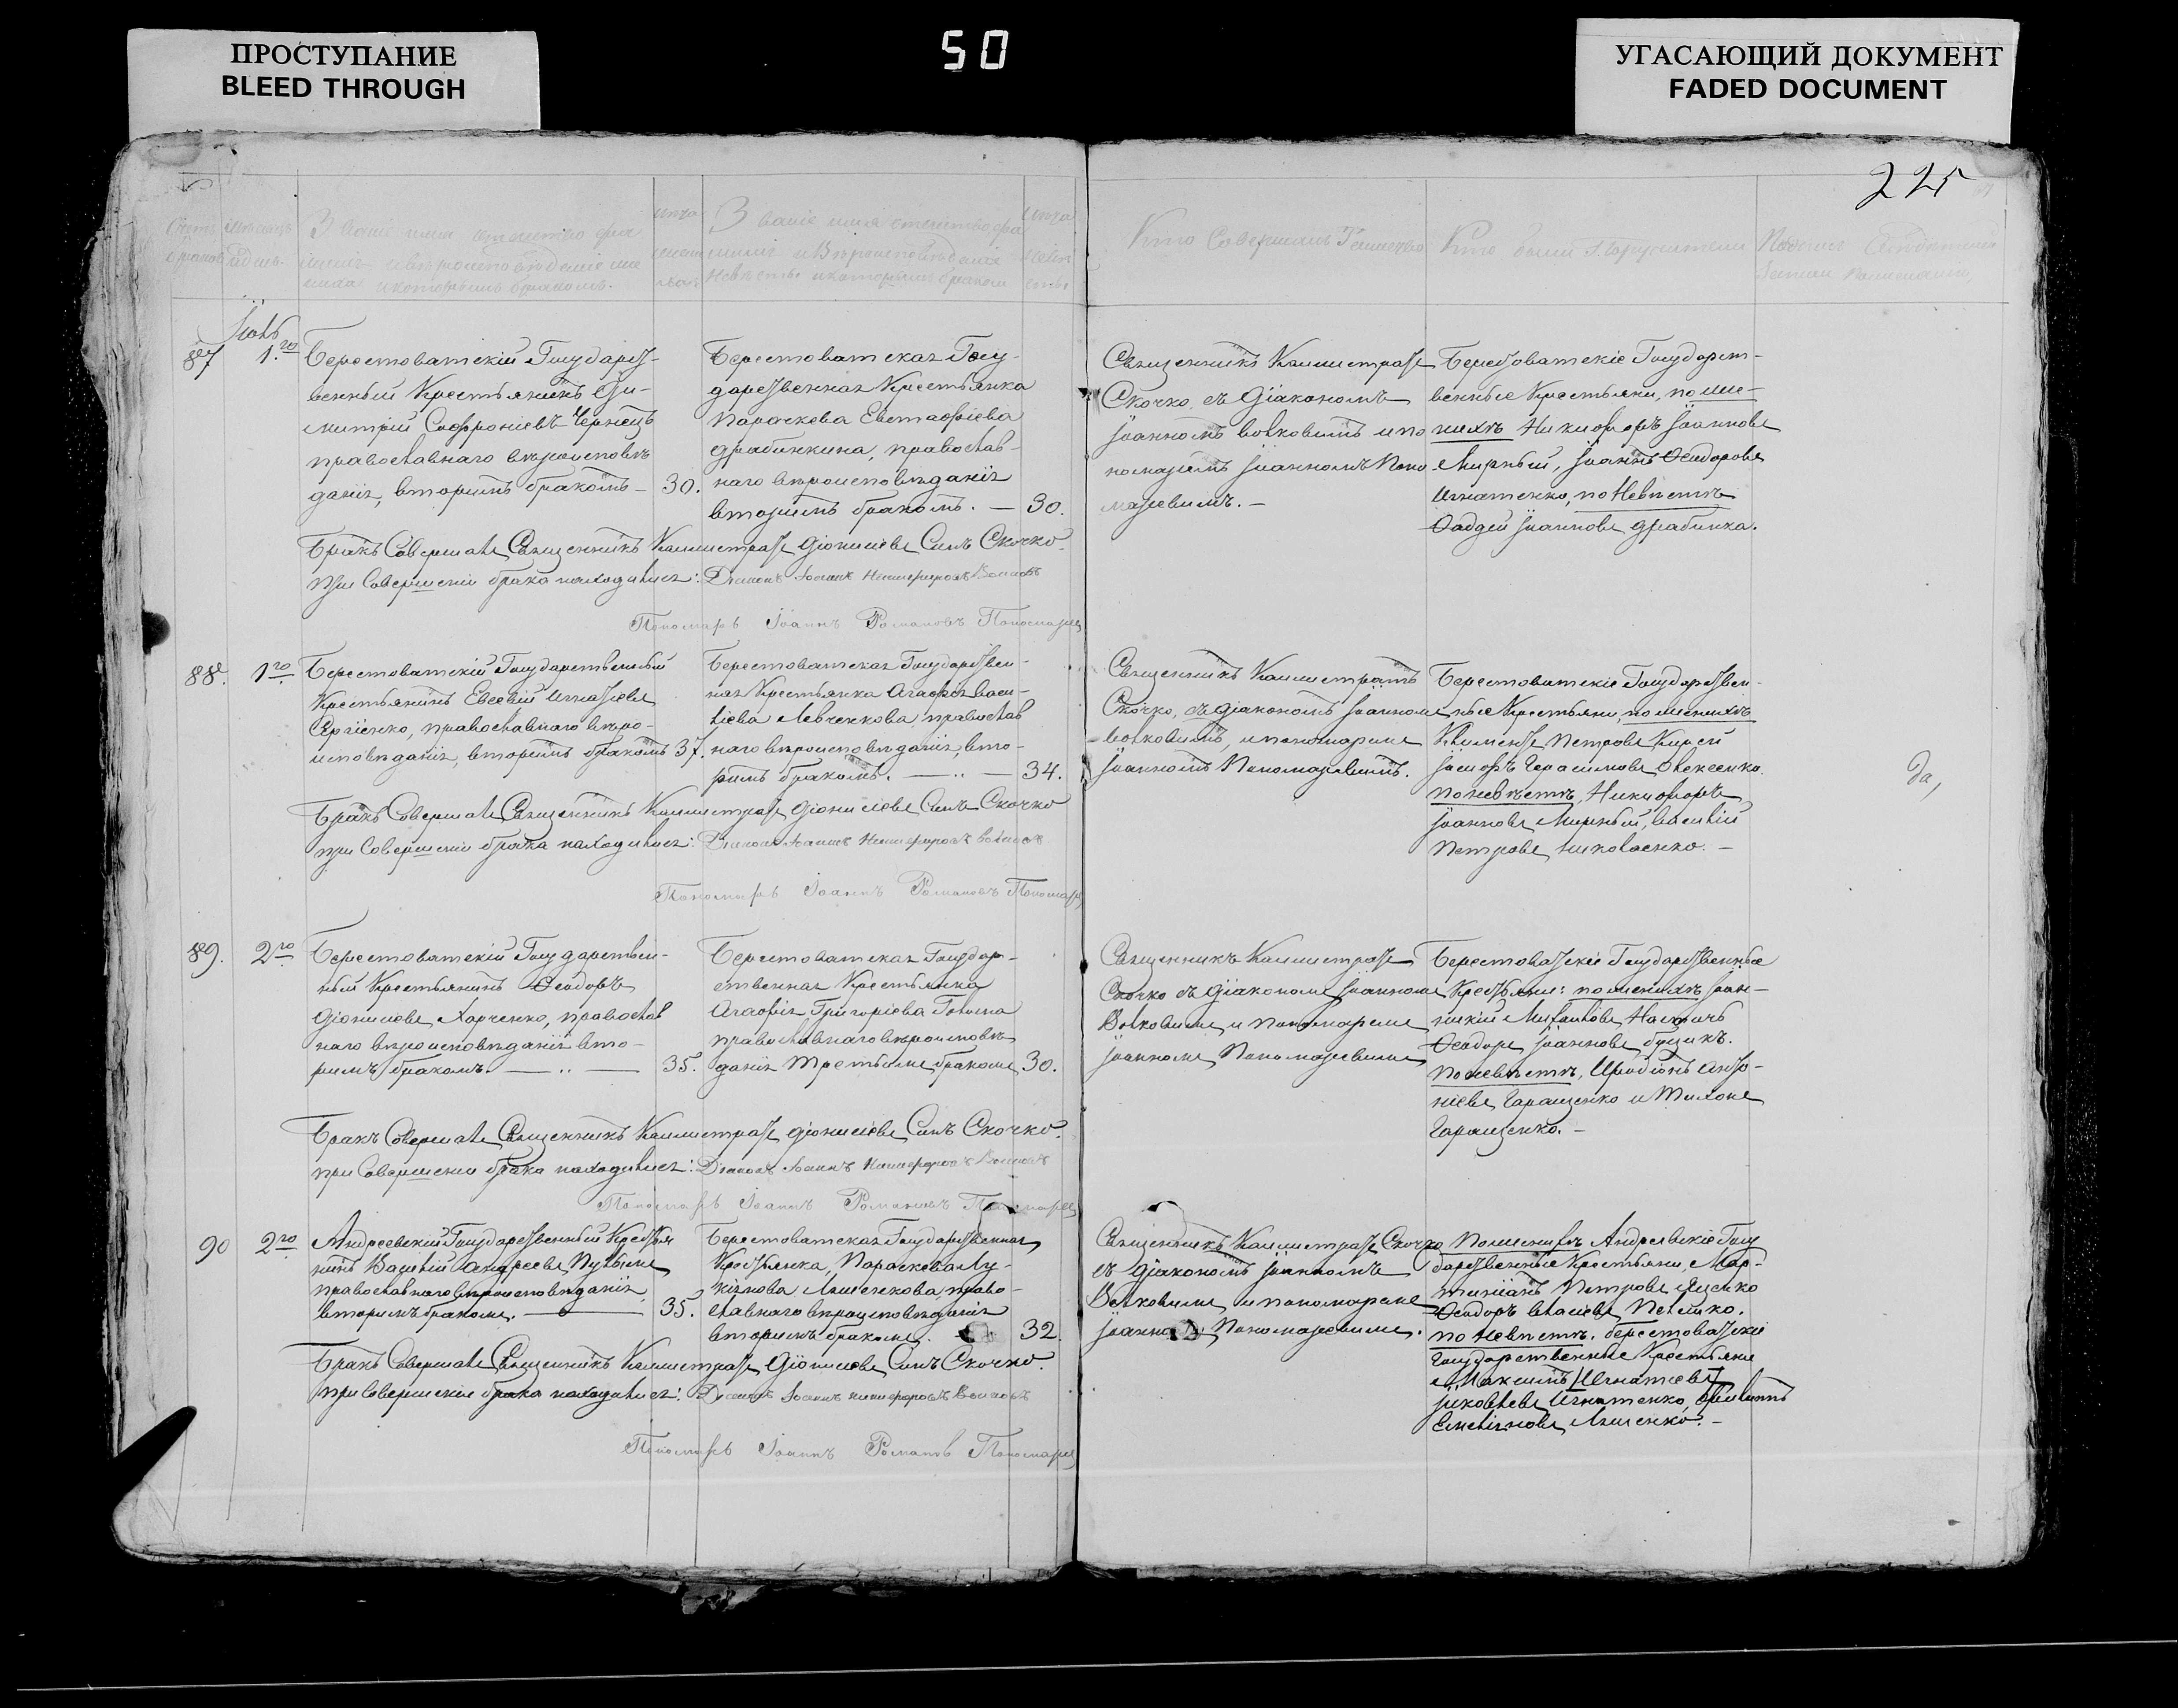 ПРОСТУПАНИЕ
BLEED THROUGH
50
УГАСАЮЩИЙ ДОКУМЕНТ
FADED DOCUMENT
225
Званіе имя отчество фа
милія и вѣроисповѣданіе же
ниха и которымъ бракомъ.
Званіе имя отчество фа
милія и вѣроисповѣданіе
невѣсты и которымъ бракомъ
Кто совершалъ Таинство
Кто были Поручители
87
1.го
Берестоватскій Государст-
венный Крестьянинъ Ди-
митрій Софроніевъ Чернецъ
православнаго вѣроисповѣ
данія, вторымъ бракомъ —
30.
Берестоватская Госу-
дарственная Крестьянка
Параскева Евстафіева
Драбинкина, православ-
наго вѣроисповѣданія
вторымъ бракомъ. —
30.
Священникъ Каллистратъ
Скочко съ Діакономъ
Іоанномъ Волковымъ и по
номаремъ Іоанномъ Поно
маревымъ. —
Берестоватскіе Государст-
венные Крестьяни, по же-
нихѣ Никифоръ Іоанновъ
Мирный, Іоаннъ Ѳеодоровъ
Игнатенко, по Невѣстѣ
Ѳаддей Іоанновъ Драбинка.
Бракъ Совершалъ Священникъ Каллистратъ Діонисіевъ Сынъ Скочко.
При Совершеніи брака находились: Діаконъ Іоаннъ Никифоровъ Волковъ
Пономарь Іоаннъ Романовъ Пономарев
88.
1го
Берестоватскій Государственный
Крестьянинъ Евсевій Игнатіевъ
Сергіенко, православнаго вѣро-
исповѣданія, вторымъ бракомъ
37.
Берестоватская Государствен-
ная Крестьянка Агафія Васи-
ліева Левченкова православ
наго вѣроисповѣданія, вто-
рымъ бракомъ. — „ —
34.
Священникъ Каллистратъ
Скочко, съ діакономъ Іоанномъ
Волковымъ, и пономаремъ
Іоанномъ Пономаревымъ.
Берестоватскіе Государствен-
ные Крестьяни, по женихѣ
Климентъ Петровъ Кирей
Іосифъ Герасимовъ Алексенко.
по невѣстѣ, Никифоръ
Іоанновъ Мирный, Василій
Петровъ Николаенко. —
Бракъ Совершалъ Священникъ Каллистратъ Діонисіевъ Сынъ Скочко
при Совершеніи брака находились: Діаконъ Іоаннъ Никифоровъ Волковъ
Пономарь Іоаннъ Романовъ Пономарев
89.
2го
Берестоватскій Государствен-
ный Крестьянинъ Ѳеодоръ
Діонисіевъ Харченко, православ
наго вѣроисповѣданія вто-
рымъ бракомъ. — „ —
35.
Берестоватская Государ-
ственная Крестьянка
Агафія Григоріева
православнаго вѣроисповѣ
данія третьимъ бракомъ
30.
Священникъ Каллистратъ
Скочко съ Діакономъ Іоанномъ
Волковымъ и пономаремъ
Іоанномъ Пономаревымъ
Берестоватскіе Государственные
Крестьяне: по женихѣ Іоан-
никій Михайловъ
Ѳеодоръ Іоанновъ Буцикъ.
По невѣстѣ, Иродіонъ Анто-
ніевъ Гаращенко и Тихонъ
Гаращенко. —
Бракъ Совершалъ Священникъ Каллистратъ Діонисіевъ Сынъ Скочко.
при Совершеніи брака находились: Діаконъ Іоаннъ Никифоровъ Волковъ
Пономарь Іоаннъ Романовъ Пономарев
90
2го
Андреевскій Государственный Крестья
нинъ Василій Андреевъ
православнаго вѣроисповѣданія,
вторымъ бракомъ. —
35.
Берестоватская Государственная
Крестьянка, Параскева Лу-
кіянова Ляшенкова, право-
славнаго вѣроисповѣданія
вторымъ бракомъ.
32.
Священникъ Каллистратъ Скочко
съ Діакономъ Іоанномъ
Волковымъ и пономаремъ
Іоанномъ Пономаревымъ.
По женихѣ Андреевскіе Госу
дарственные Крестьяни, Мар-
тиніанъ Петровъ Яценко
Ѳеодоръ Власіевъ
по Невѣстѣ. Берестоватскіе
Государственные Крестьяне
Максимъ [Игнатіевъ]
Іяковлевъ Игнатенко,
Емельяновъ Ляшенко. —
Бракъ Совершалъ Священникъ Каллистратъ Діонисіевъ Сынъ Скочко.
при Совершеніи брака находились: Діаконъ Іоаннъ Никифоровъ Волковъ
Пономарь Іоаннъ Романовъ Пономарев